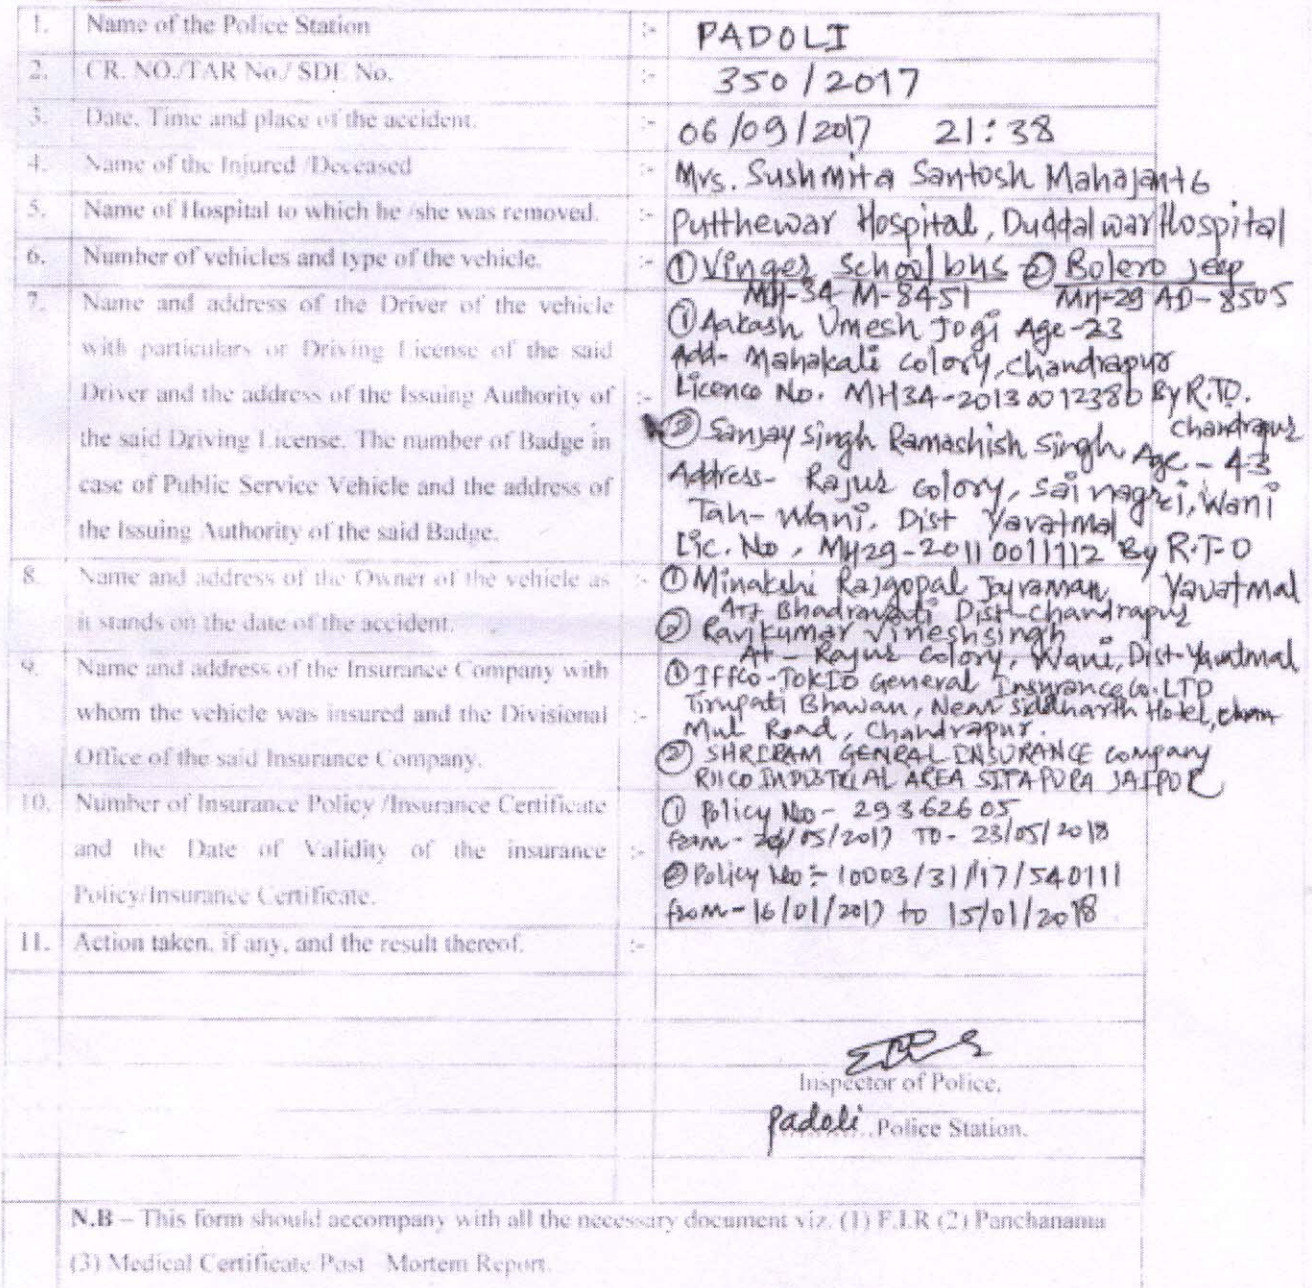 1. Name of the Police Station :- PADOLI
2. CR. NO./TAR No./ SDE No. :- 350/2017
3. Date, Time and place of the accident. :- 06/09/2017 21:38
4. Name of the Injured /Deceased :- Mrs. Sushmita Santosh Mahajan+6
5. Name of Hospital to which he /she was removed. :- Putthewar Hospital, Duddalwar Hospital
6. Number of vehicles and type of the vehicle. :- ① Vinger School bus ② Bolero jeep
MH-34 M-8451 MH-29 AD-8505
7. Name and address of the Driver of the vehicle
with particulars or Driving License of the said
Driver and the address of the Issuing Authority of :-
the said Driving License. The number of Badge in
case of Public Service Vehicle and the address of
the Issuing Authority of the said Badge.
① Aakash Umesh Jogi Age-23
Add- Mahakali colory, Chandrapur
Licence No. MH34-20130012380 By R.T.O.
Chandrapur
② Sanjay singh Ramashish singh Age - 43
Address- Rajur colory, sai nagrei, Wani
Tah- Wani, Dist Yavatmal
Lic. No, MH29-20110011112 By R.T-O
Yavatmal
8. Name and address of the Owner of the vehicle as :-
it stands on the date of the accident.
① Minakshi Rajgopal Jayraman,
At Bhadravati Dist-Chandrapur
② Ravikumar Vineshsingh
At- Rajur colory, Wani, Dist-Yavatmal
9. Name and address of the Insurance Company with
whom the vehicle was insured and the Divisional :-
Office of the said Insurance Company.
① IFFCO-TOKIO General Insurance Co. LTD
Tirupati Bhawan, Near Siddharth Hotel,
Mul Road, Chandrapur.
② SHRIRAM GENRAL INSURANCE Company
RIICO INDUSTRIAL AREA SITAPURA JAIPUR
10. Number of Insurance Policy /Insurance Certificate
and the Date of Validity of the insurance :-
Policy/Insurance Certificate.
① Policy No- 29362605
from - 24/05/2017 TO - 23/05/2018
② Policy No:- 10003/31/17/540111
from - 16/01/2017 to 15/01/2018
11. Action taken, if any, and the result thereof. :-
Inspector of Police,
Padoli Police Station.
N.B – This form should accompany with all the necessary document viz. (1) F.I.R (2) Panchanama
(3) Medical Certificate Post Mortem Report.